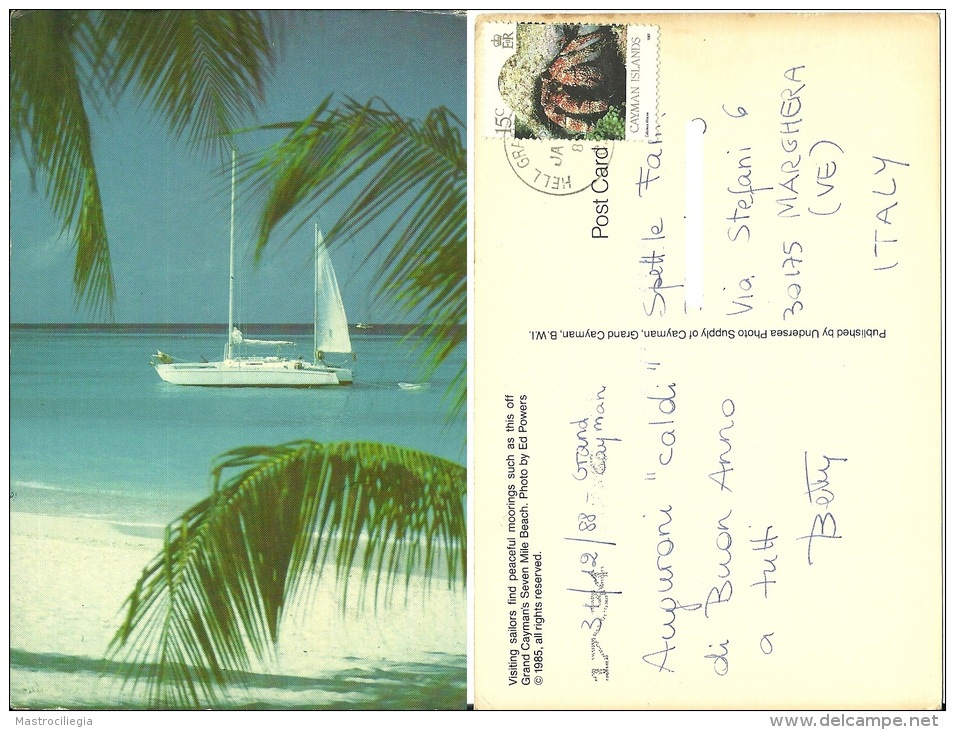 Visiting sailors find peaceful moorings such as this off
Grand Cayman's Seven Mile Beach. Photo by Ed Powers
© 1985, all rights reserved.
31/12/88 - Grand
Cayman
Auguroni "caldi"
di Buon Anno
a tutti
Betty
Published by Undersea Photo Supply of Cayman, Grand Cayman, B.W.I.
Post Card
15c
E R
CAYMAN ISLANDS
HELL GRA
JA
8
Spett.le Fam
Via Stefani 6
30175 MARGHERA
(VE)
ITALY
Mastrociliegia
delcampe.net